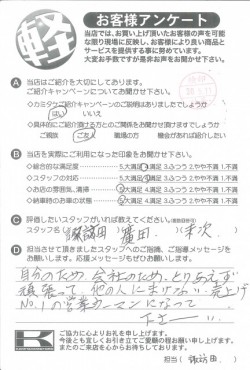 軽
お客様アンケート
当店では、お買い上げ頂いたお客様の声を可能な
限り現場に反映し、お客様により良い商品と
サービスを提供する事に努めています。
大変お手数ですが是非お声をお聞かせ下さい。
A 当店はご紹介を大切にしております。
ご紹介キャンペーンについてお聞かせ下さい。
◇カミタケご紹介キャンペーンの説明はありましたでしょうか
はい いいえ
◇具体的にご紹介頂ける方とのご関係をお聞かせ頂けますでしょうか
ご親族 ご友人 職場の方 機会があれば紹介したい
B 当店を実際にご利用になられた印象をお聞かせ下さい。
◇総合的な満足度 5.大満足 4.満足 3.ふつう 2.やや不満 1.不満
◇スタッフの対応 5.大満足 4.満足 3.ふつう 2.やや不満 1.不満
◇お店の雰囲気、清掃 5.大満足 4.満足 3.ふつう 2.やや不満 1.不満
◇納車時のお車の状態 5.大満足 4.満足 3.ふつう 2.やや不満 1.不満
C 評価したいスタッフがいれば教えてください。
スタッフ名 諏訪田 廣田
D 担当させて頂きましたスタッフへのご指摘、ご指導メッセージを
お願いします。応援メッセージもぜひお願いします。
自分のため、会社のため、とりあえず
頑張って、他の人にまけない 売上げ
No.1の営業カーマンになって
下さーい
K
ご協力に心よりお礼を申し上げます。
今後とも宜しくお引き立てご愛顧の程お願い申し上げます。
またのご来店を心からお待ちしております。
担当( 諏訪田 )